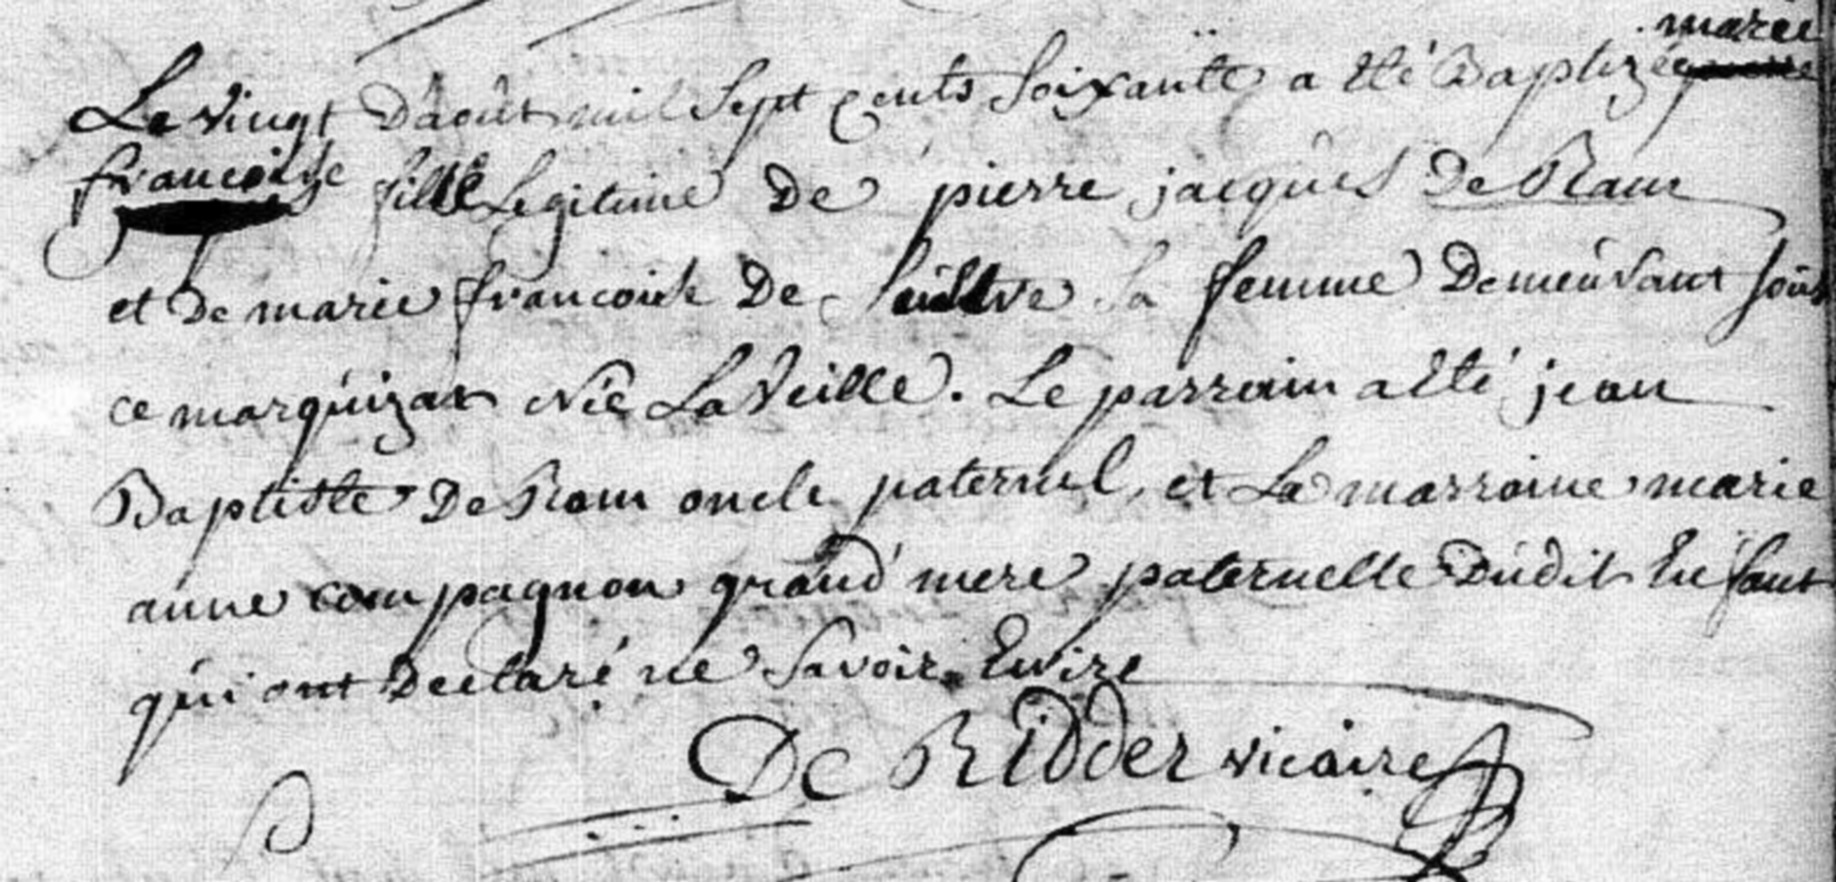 marie
Le vingt D'aoüt mil Sept Cents Soixante a Eté Baptizée
francoise fille Legitime De pierre jacques De Ram
et De marie francoise De Sa femme Demeurant Sous
ce marquizat Née La Veille. Le parrain a Eté jean
Baptiste De Ram oncle paternel, et La marraine marie
anne compagnon grand mere paternelle Dudit Enfant
qui ont Declaré ne Savoir Ecrire
De Ridder vicaire